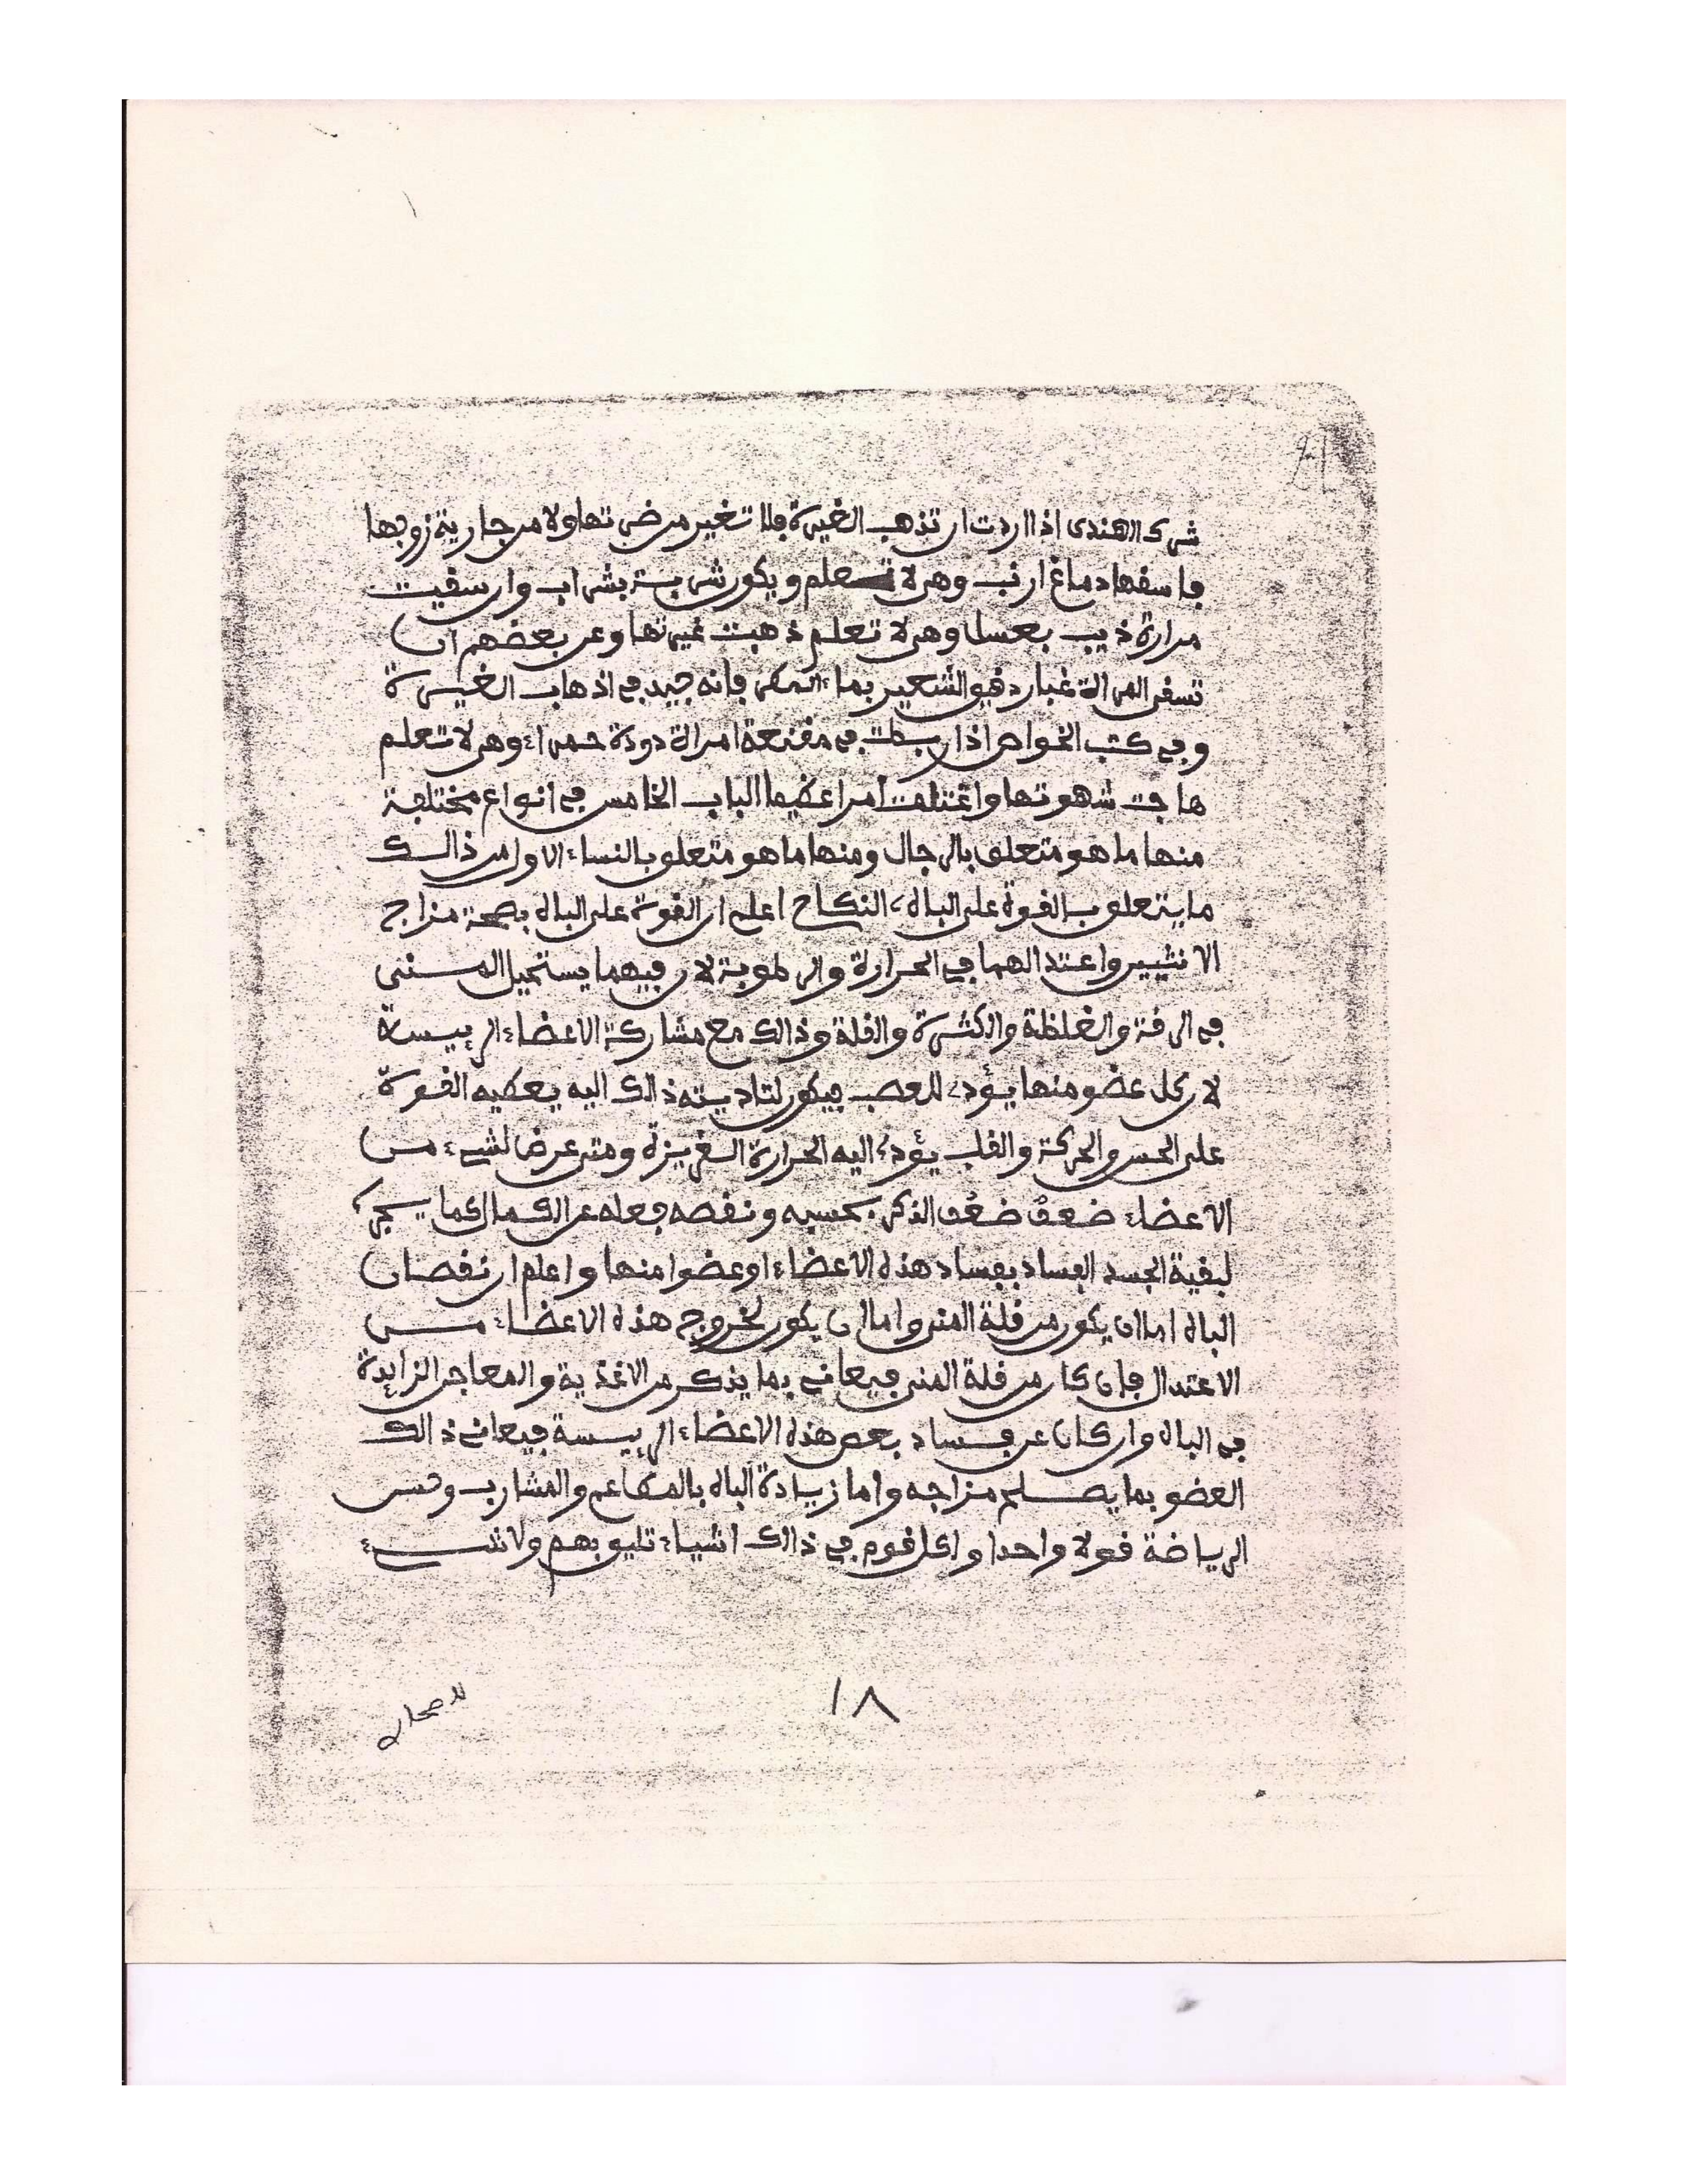 شرك الهندى اذا اردت ان تذهب الغيرة فلا تغير من ضرتها ولا من جارية زوجها
فاسقها دماغ ارنب وهى لا تعلم ويكون شربته بشراب وان سقيت
مرارة ذيب بعسل وهى لا تعلم ذهبت غيرتها وعن بعضهم ان
تسقى المراة غبار دقيق الشعير بماء المطر فانه جيد في اذهاب الغيرة
وفي كتب الخواص اذا ربطت في مقنعة امراة دودة حمراء وهى لا تعلم
هاجت شهوتها واغتلمت امرا عظيما الباب الخامس في انواع مختلفة
منها ما هو متعلق بالرجال ومنها ما هو متعلق بالنساء الاول من ذالك
ما يتعلق بالقوة على الباه النكاح اعلم ان القوة على الباه بصحة مزاج
الانثيين واعتدالهما في الحرارة والرطوبة لان فيهما يستحيل المنى
في الرقة والغلظة والكثرة والقلة وذالك مع مشاركة الاعضاء الرييسة
لان كل عضو منها يؤدى للعصب فيكون لتاديته ذالك اليه يعطيه القوة
على الحس والحركة والقلب يؤدى اليه الحرارة الغريزة ومتى عرض لشيء من
الاعضاء ضعف ضعف الذكر بحسبه ونقصه فعله عن الكمال كما يجرى
لبقية الجسد الفساد بفساد هذه الاعضاء او عضوا منها واعلم ان نقصان
الباه اما ان يكون من قلة المنى واما ان يكون لخروج هذه الاعضاء من
الاعتدال فان كان من قلة المنى فيعانى بما يذكر من الاغذية والمعاجن الزايدة
في الباه وان كان عن فساد بعض هذه الاعضاء الرييسة فيعانى ذالك
العضو بما يصلح مزاجه واما زيادة الباه بالمطاعم والمشارب وحسن
الرياضة قولا واحدا ولكل قوم في ذالك اشياء تليق بهم ولا شيء
١٨